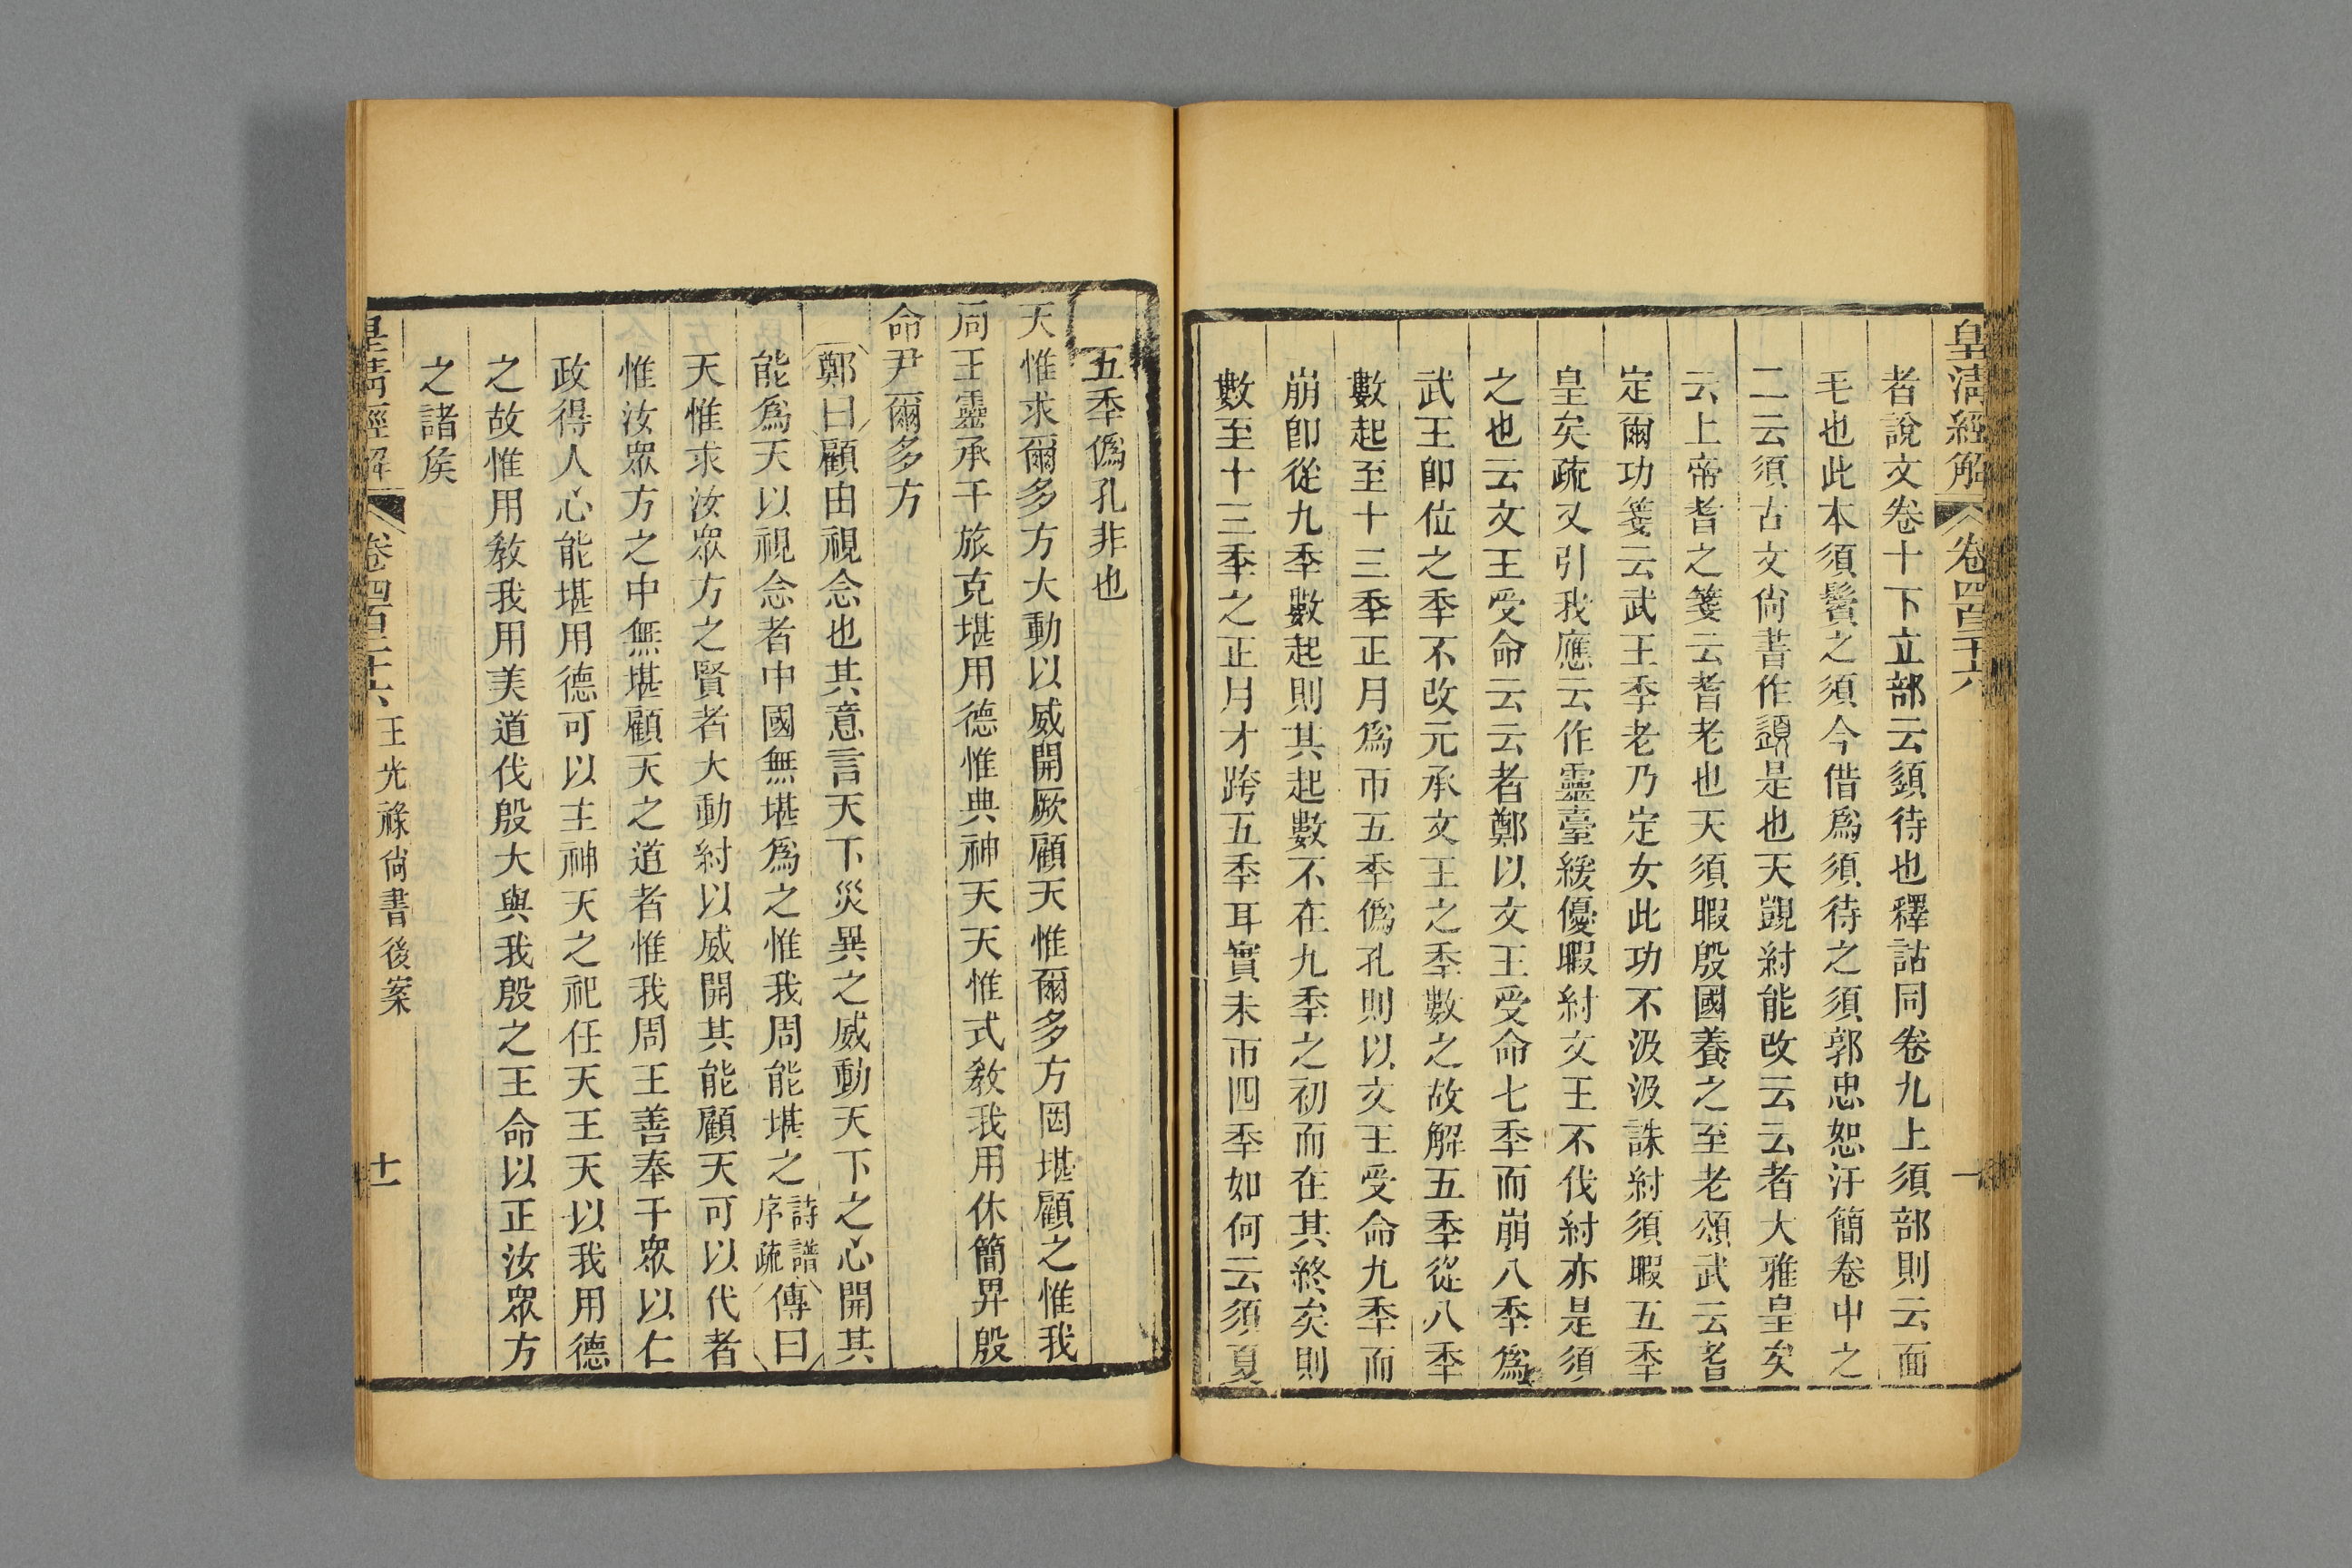 皇清經解
卷四百二十六
者說文卷十下立部云䇓待也釋詁同卷九上須部則云面
毛也此本須鬢之須今借爲須待之須郭忠恕汗簡卷中之
二云須古文尙書作䇓是也天覬紂能改云云者大雅皇矣
云上帝耆之箋云耆老也天須暇殷國養之至老頌武云耆
定爾功箋云武王秊老乃定女此功不汲汲誅紂須暇五秊
皇矣疏又引我應云作靈臺緩優暇紂文王不伐紂亦是須
之也云文王受命云云者鄭以文王受命七秊而崩八秊爲
武王卽位之秊不改元承文王之秊數之故解五秊從八秊
數起至十三秊正月爲帀五秊僞孔則以文王受命九秊而
崩卽從九秊數起則其起數不在九秊之初而在其終矣則
數至十三秊之正月才跨五秊耳實未帀四秊如何云須夏
五秊僞孔非也
天惟求爾多方大動以威開厥顧天惟爾多方罔堪顧之惟我
周王靈承于旅克堪用德惟典神天天惟式敎我用休簡畀殷
命尹爾多方
鄭曰顧由視念也其意言天下災異之威動天下之心開其
能爲天以視念者中國無堪爲之惟我周能堪之詩譜序疏傳曰
天惟求汝眾方之賢者大動紂以威開其能顧天可以代者
惟汝眾方之中無堪顧天之道者惟我周王善奉于眾以仁
政得人心能堪用德可以主神天之祀任天王天以我用德
之故惟用敎我用美道伐殷大與我殷之王命以正汝眾方
之諸矦
皇清經解
卷四百二十六
王光祿尙書後案
十一